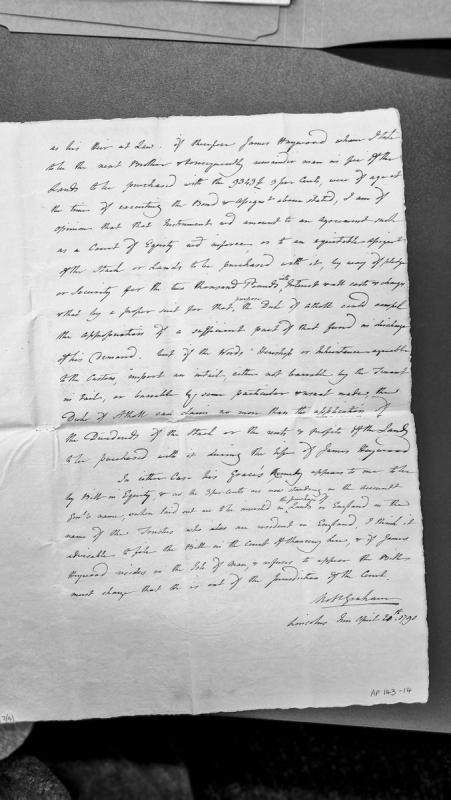 as his Heir at Law. If therefore James Heywood whom I take
to be the next Brother & consequently remainder man in fee of the
Lands to be purchased with the 9343£ 3 per Cents, were of age at
the time of executing the Bond & Assignt above stated, I am of
opinion that that Instrument wd amount to an agreement such
as a Court of Equity wd inforce or to an equitable Assignt
of the Stock or Lands to be purchased with it, by way of pledge
or Security for the two thousand Pounds, Interest & all costs & charges
& that by a proper suit for that purpose, the Duke of Atholl could compel
the appropriation of a sufficient part of that fund in discharge
of his demand. But if the Words Heirship or Inheritance agreeable
to the Custom, import an intail, either not barrable by the Tenant
in tail, or barrable by some particular & unusual mode, the
Duke of Atholl can claim no more than the application of
the Dividends of the Stock or the rents & profits of the Lands
to be purchased with it during the life of James Heywood
In either Case his Grace's Remedy appears to me to be
by Bill in Equity & as the 3 per cents are now standing in the account
Genl's name, & when laid out are to be invested in the purchase of Lands in England in the
name of the Trustees who also are resident in England, I think it
adviseable to file the Bill in the Court of Chancery here, & if James
Heywood resides in the Isle of Man, & refuses to appear the Bill
must charge that he is out of the jurisdiction of the Court.
Robt Graham
Lincolns Inn April 20th 1790
AP 143-14